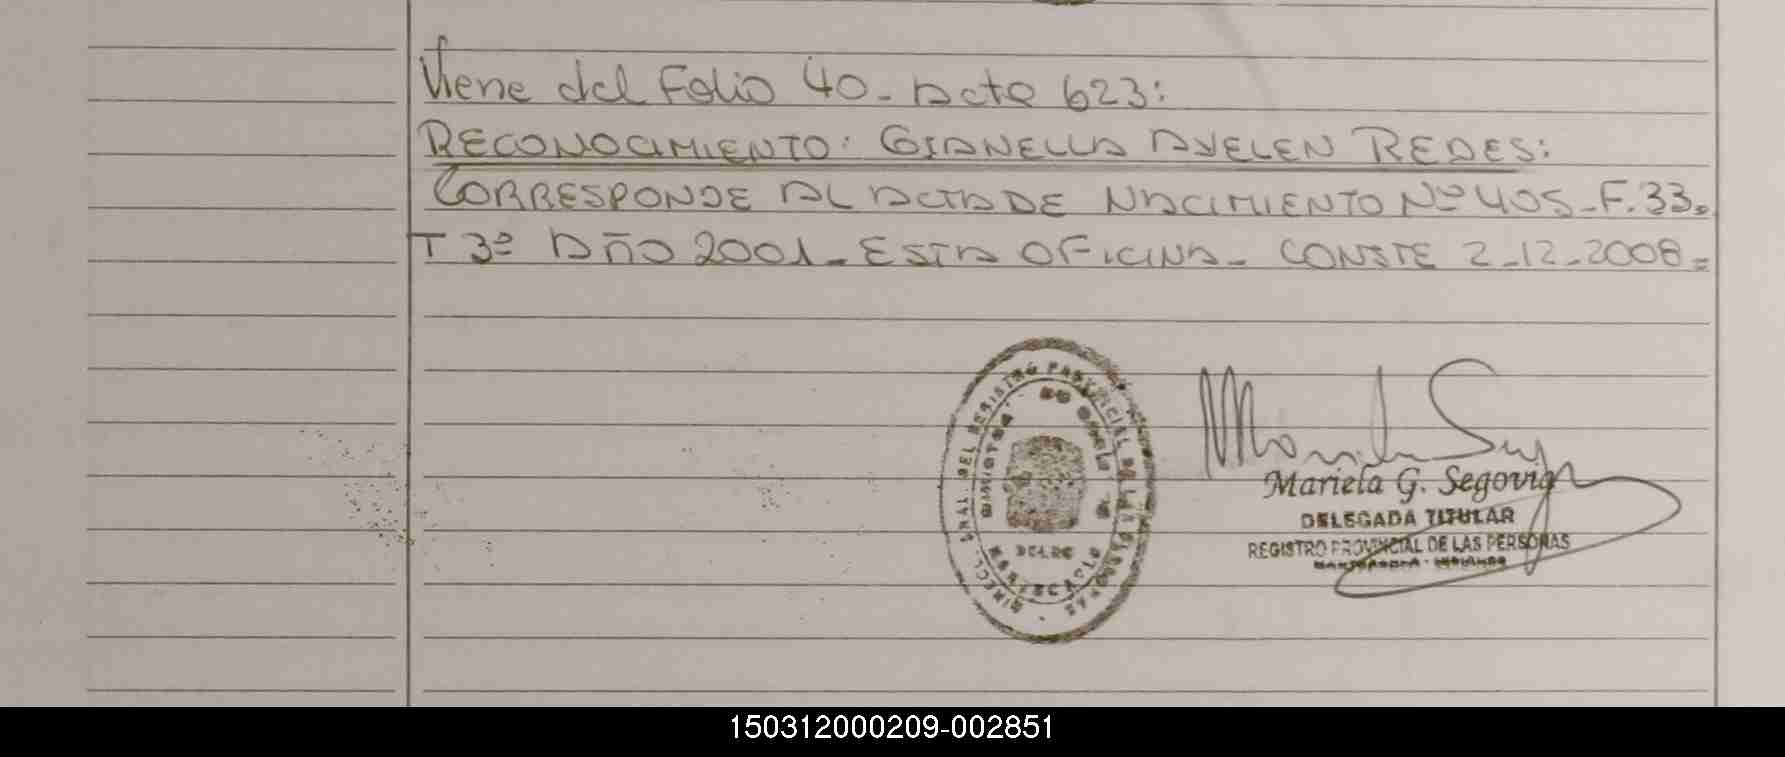 Viene del Folio 40. Acta 623:
RECONOCIMIENTO: GIANELLA AYELEN REDES:
CORRESPONDE AL ACTA DE NACIMIENTO Nº 405-F.33.
T 3º AÑO 2001. ESTA OFICINA. CONSTE 2-12-2008=
DIRECC. GRAL. DEL REGISTRO PROVINCIAL DE LAS PERSONAS
Mariela G. Segovia
DELEGADA TITULAR
REGISTRO PROVINCIAL DE LAS PERSONAS
150312000209-002851